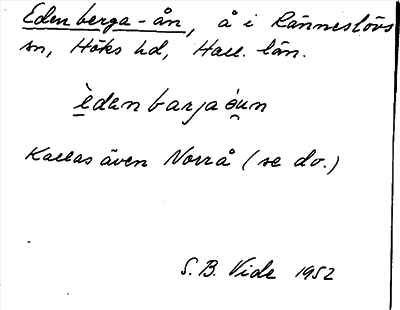 Edenberga-ån, å i Ränneslövs
sn, Höks hd, Hall. län.
èdenbarjaóun
Kallas även Norrå (se do.)
S. B. Vide 1952